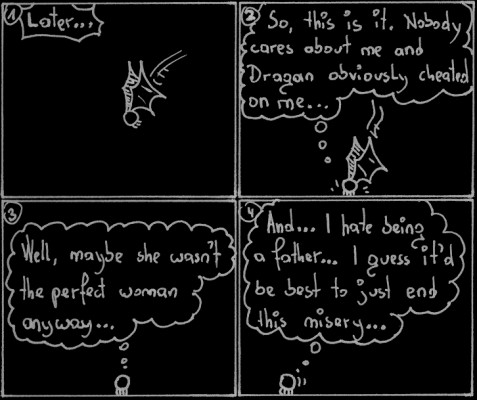 1
Later...
2
So, this is it. Nobody
cares about me and
Dragan obviously cheated
on me...
3
Well, maybe she wasn't
the perfect woman
anyway...
4
And... I hate being
a father... I guess it'd
be best to just end
this misery...